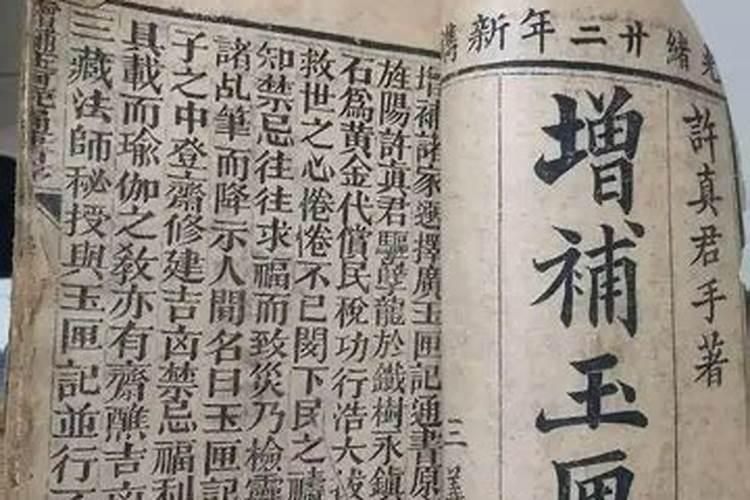 光緒廿二年新鐫
許真君手著
增補玉匣
增補諸家選擇廣玉匣記通書原
旌陽許真君驅孽龍於鐵樹永鎮
石為黃金代償民稅功行浩大拔
救世之心惓惓不已閔下民之禱
知禁忌往往求福而致災乃檢靈
諸乩筆而降示人間名曰玉匣記
子之中登齋修建吉凶禁忌福利
具載而瑜伽之敎亦有齋醮吉凶
三藏法師秘授與玉匣記並行